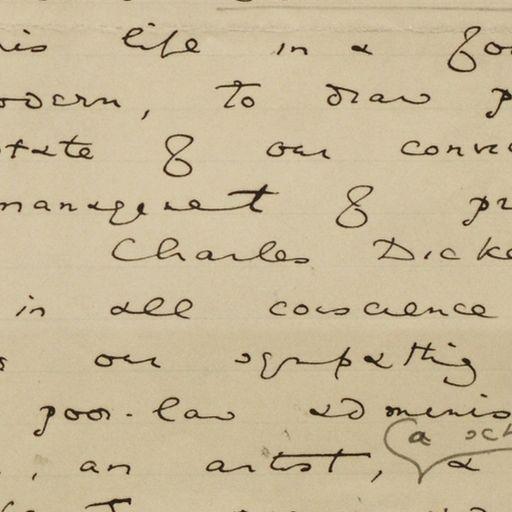 his life in a
modern, to draw
state of our
management of
Charles Dicke
in all conscience
our sympathy
poor-law adminis
a sch
, an artist, a